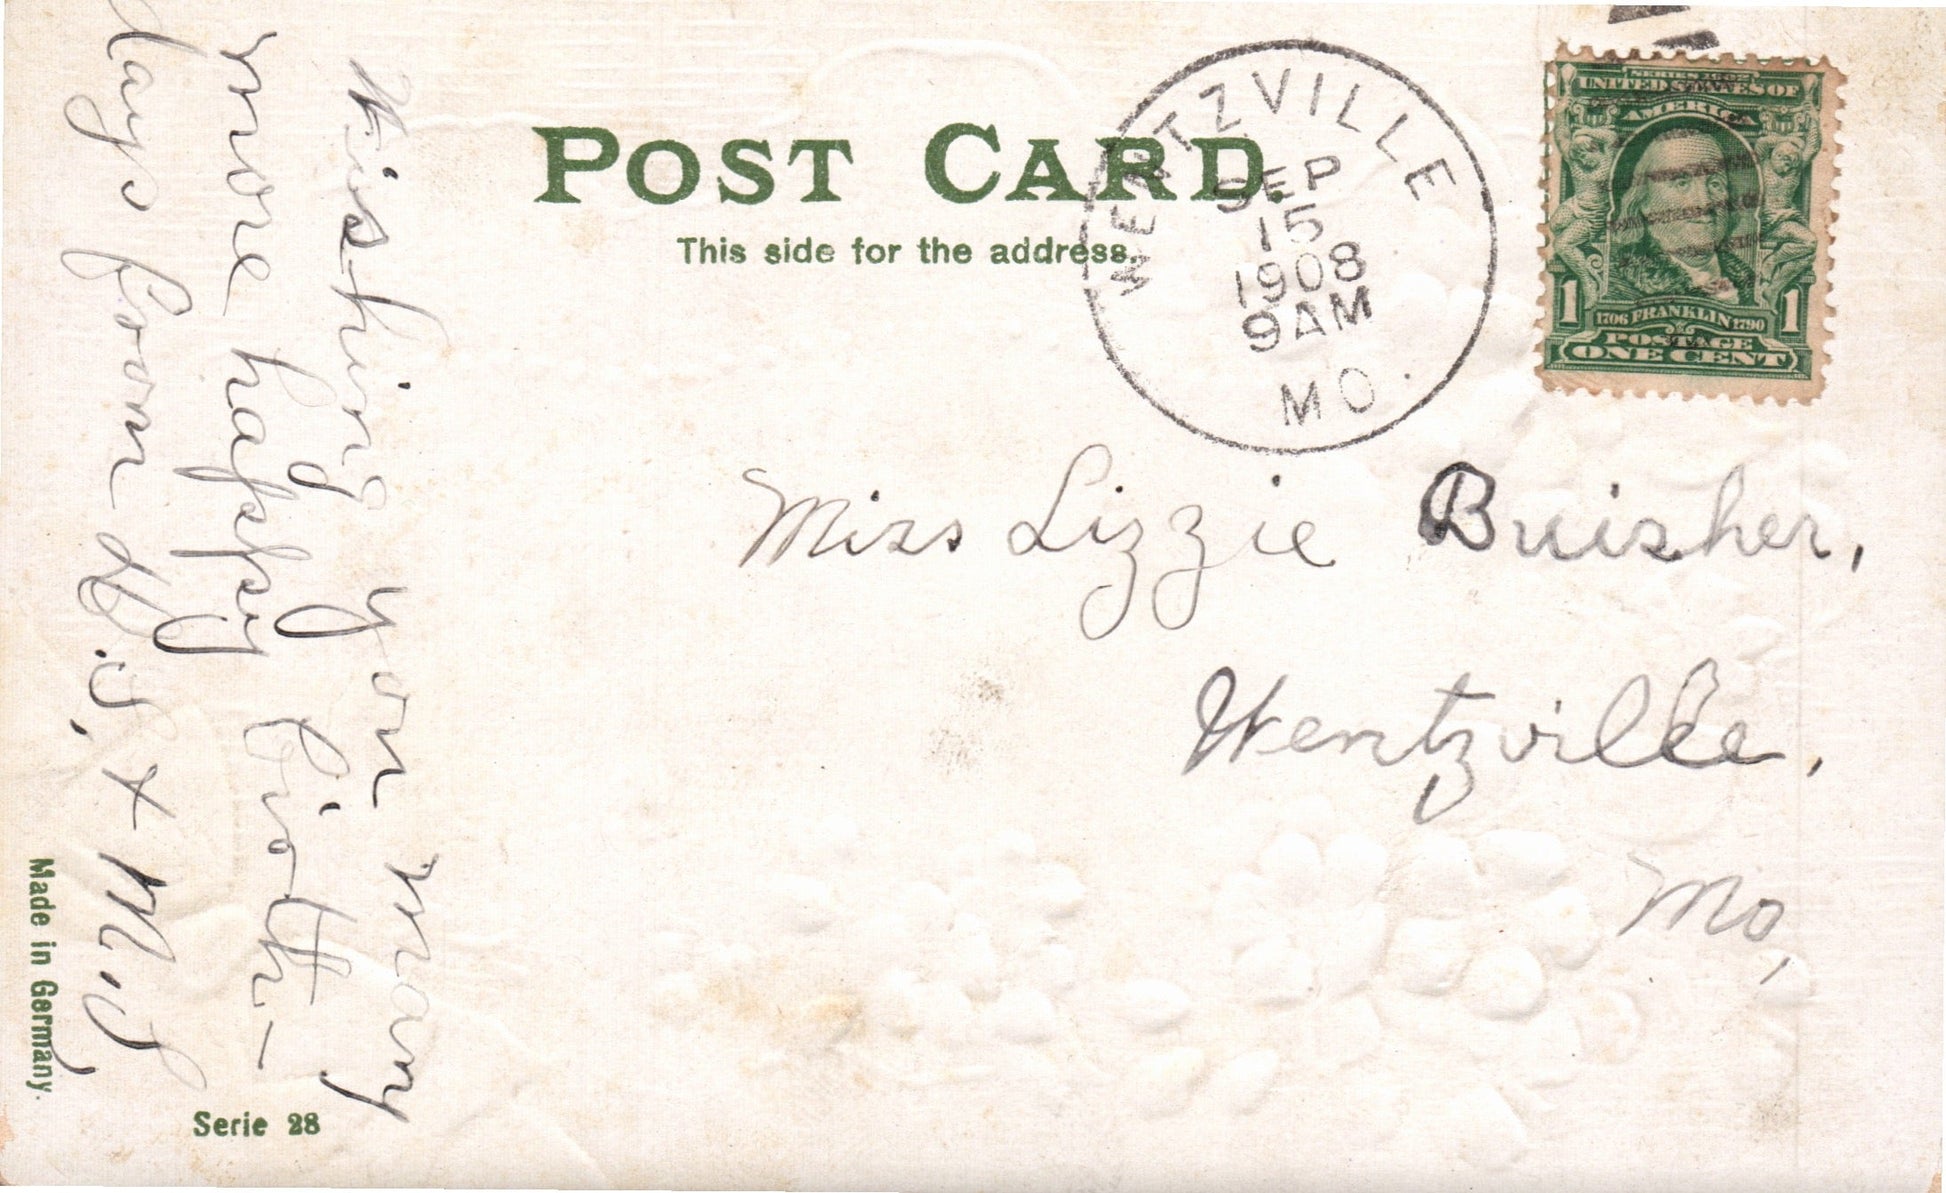 POST CARD.
This side for the address.
WENTZVILLE
SEP
15
1908
9 AM
MO.
SERIES 1902
UNITED STATES OF
AMERICA
1 1
1706 FRANKLIN 1790
POSTAGE
ONE CENT
Miss Lizzie Buisher,
Wentzville,
Mo,
Wishing you many
more happy birth-
days from W.S, + M.S,
Made in Germany.
Serie 28